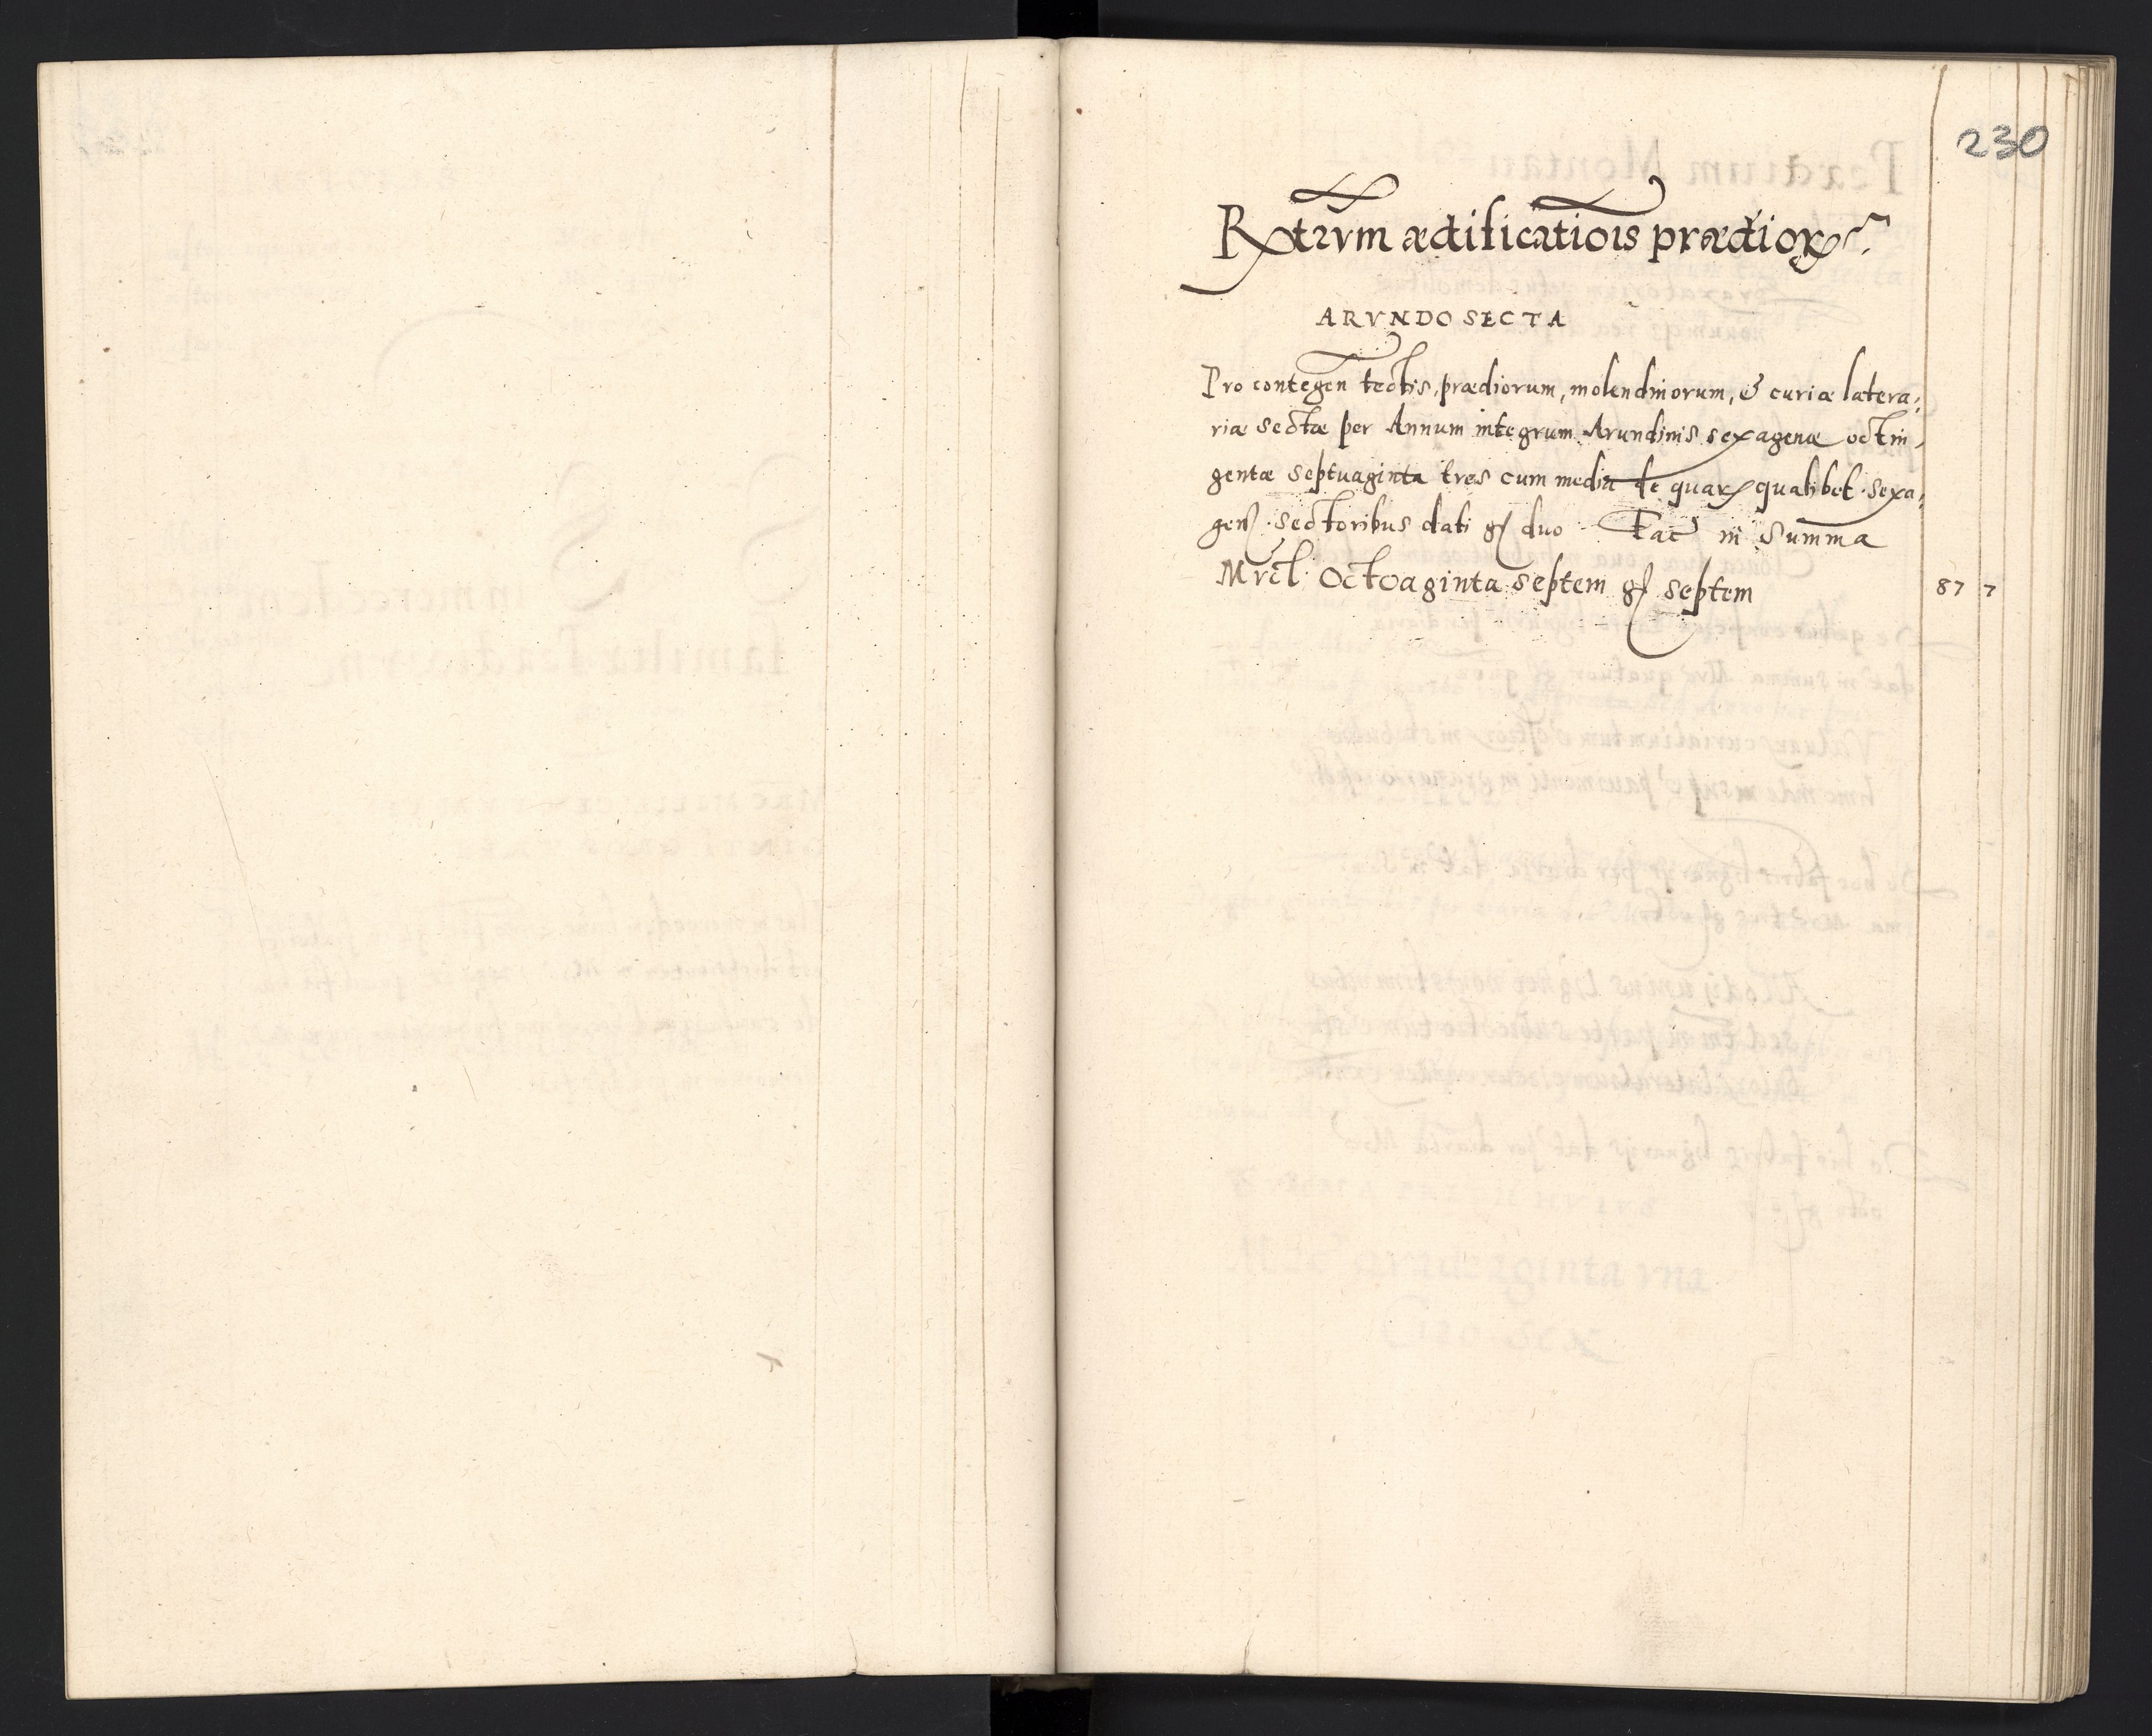 230
Rxtrvm ædificatiois prædiorꝝ
ARVNDO SECTA
Pro contegen tectis, prædiorum, molendinorum, & curiæ latera,
riæ sectæ per Annum integrum Arundinis sexagenæ octin,
gentæ septuaginta tres cum media de quarꝝ qualibet sexa,
gen. sectoribus dati gſ duo Fac in Summa
Mrcl: Octoaginta septem gſ septem 87 7